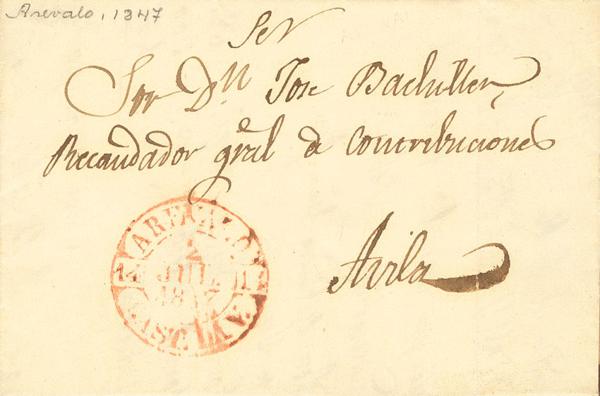 Arevalo, 1847
Sor Dn Jose Bachiller
Recaudador gral de Contribuciones
Avila
AREVALO
2
JUL
1847
CAST. LA V.